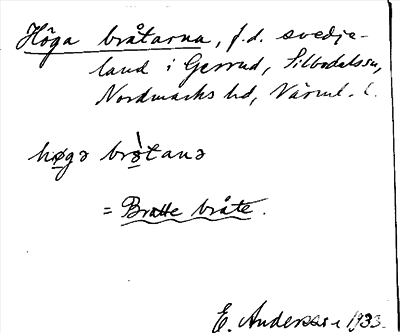 Höga bråtarna, f.d. svedje-
land i Gerrud, Silbodalssn,
Nordmarks hd, Värml. l.
høgə bròtanə
= Bratte bråte.
E. Andersson 1933.